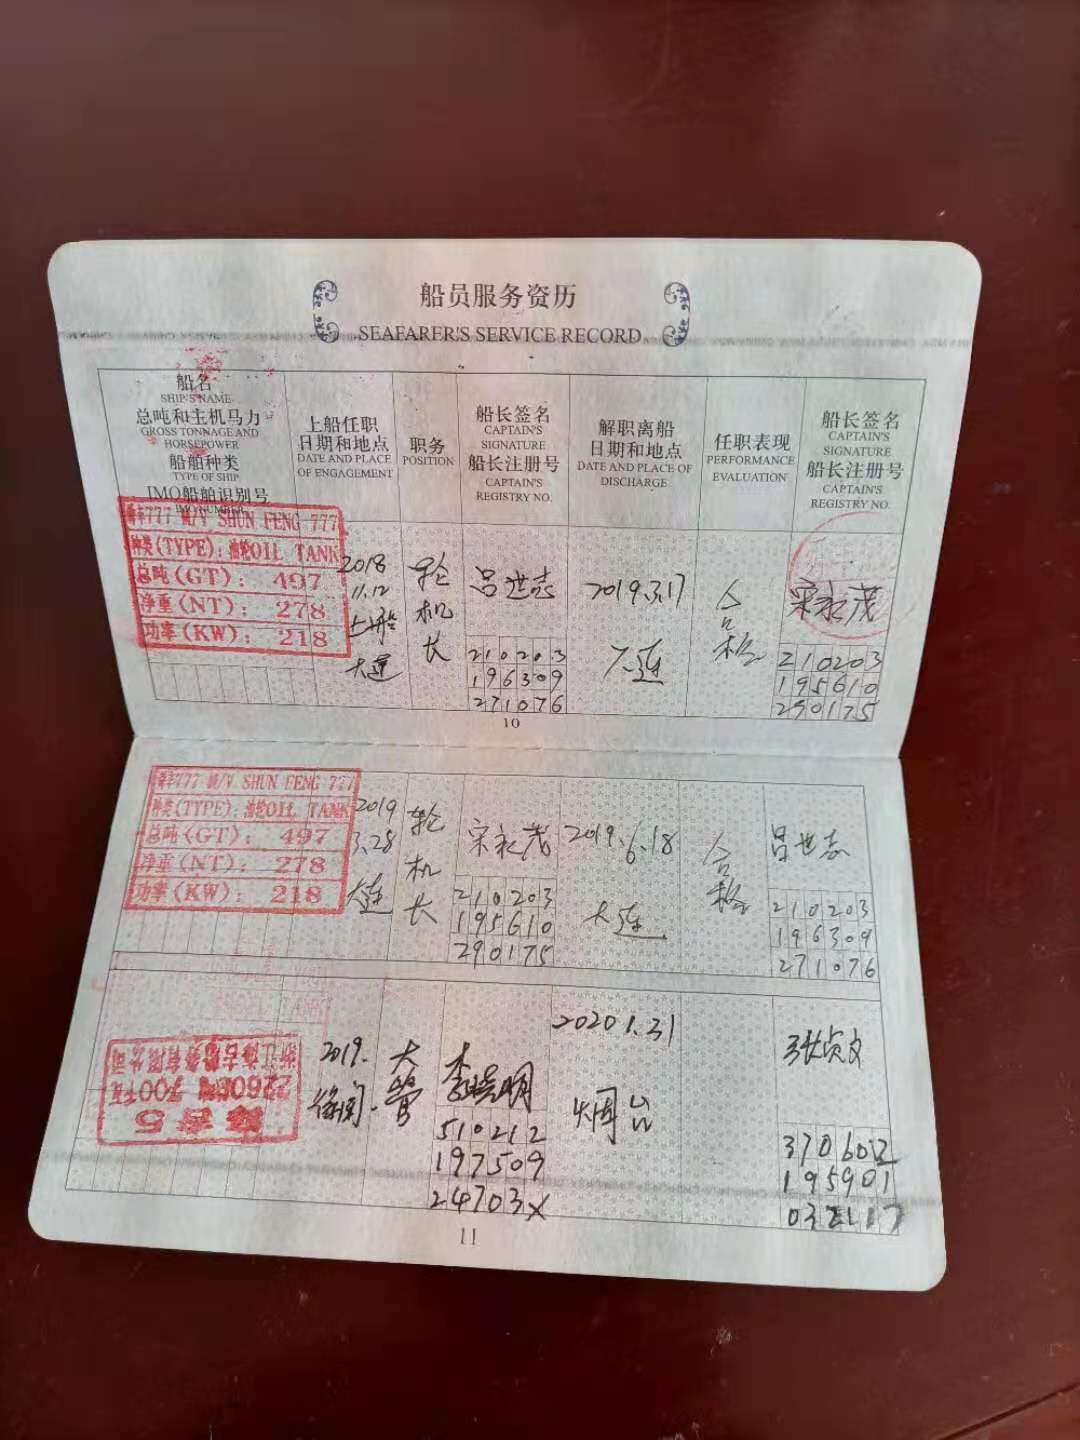 船员服务资历
SEAFARER'S SERVICE RECORD
船名
SHIP'S NAME
总吨和主机马力
GROSS TONNAGE AND
HORSEPOWER
船舶种类
TYPE OF SHIP
IMO船舶识别号
IMO NUMBER
上船任职
日期和地点
DATE AND PLACE
OF ENGAGEMENT
职务
POSITION
船长签名
CAPTAIN'S
SIGNATURE
船长注册号
CAPTAIN'S
REGISTRY NO.
解职离船
日期和地点
DATE AND PLACE OF
DISCHARGE
任职表现
PERFORMANCE
EVALUATION
船长签名
CAPTAIN'S
SIGNATURE
船长注册号
CAPTAIN'S
REGISTRY NO.
777 M/V SHUN FENG 777
种类(TYPE): 油轮OIL TANK
总吨(GT): 497
净重(NT): 278
功率(KW): 218
2018
11.12
上船
大连
轮机长
吕世志
210203
196309
271076
2019.3.17
大连
合格
宋永茂
210203
195610
290175
10
777 M/V SHUN FENG 777
种类(TYPE): 油轮OIL TANK
总吨(GT): 497
净重(NT): 278
功率(KW): 218
2019
3.28
大连
轮机长
宋永茂
210203
195610
290175
2019.6.18
大连
合格
吕世志
210203
196309
271076
2019.
大管
510212
197509
24703X
2020.1.31
烟台
张贞文
370602
195901
11